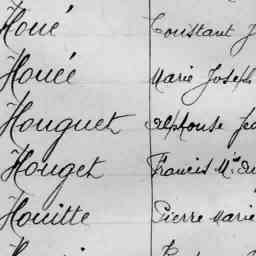 Houé Constant J
Houée Marie Joseph
Houguet Alphonse Jea
Houget Francis Mie
Houitte Pierre Marie